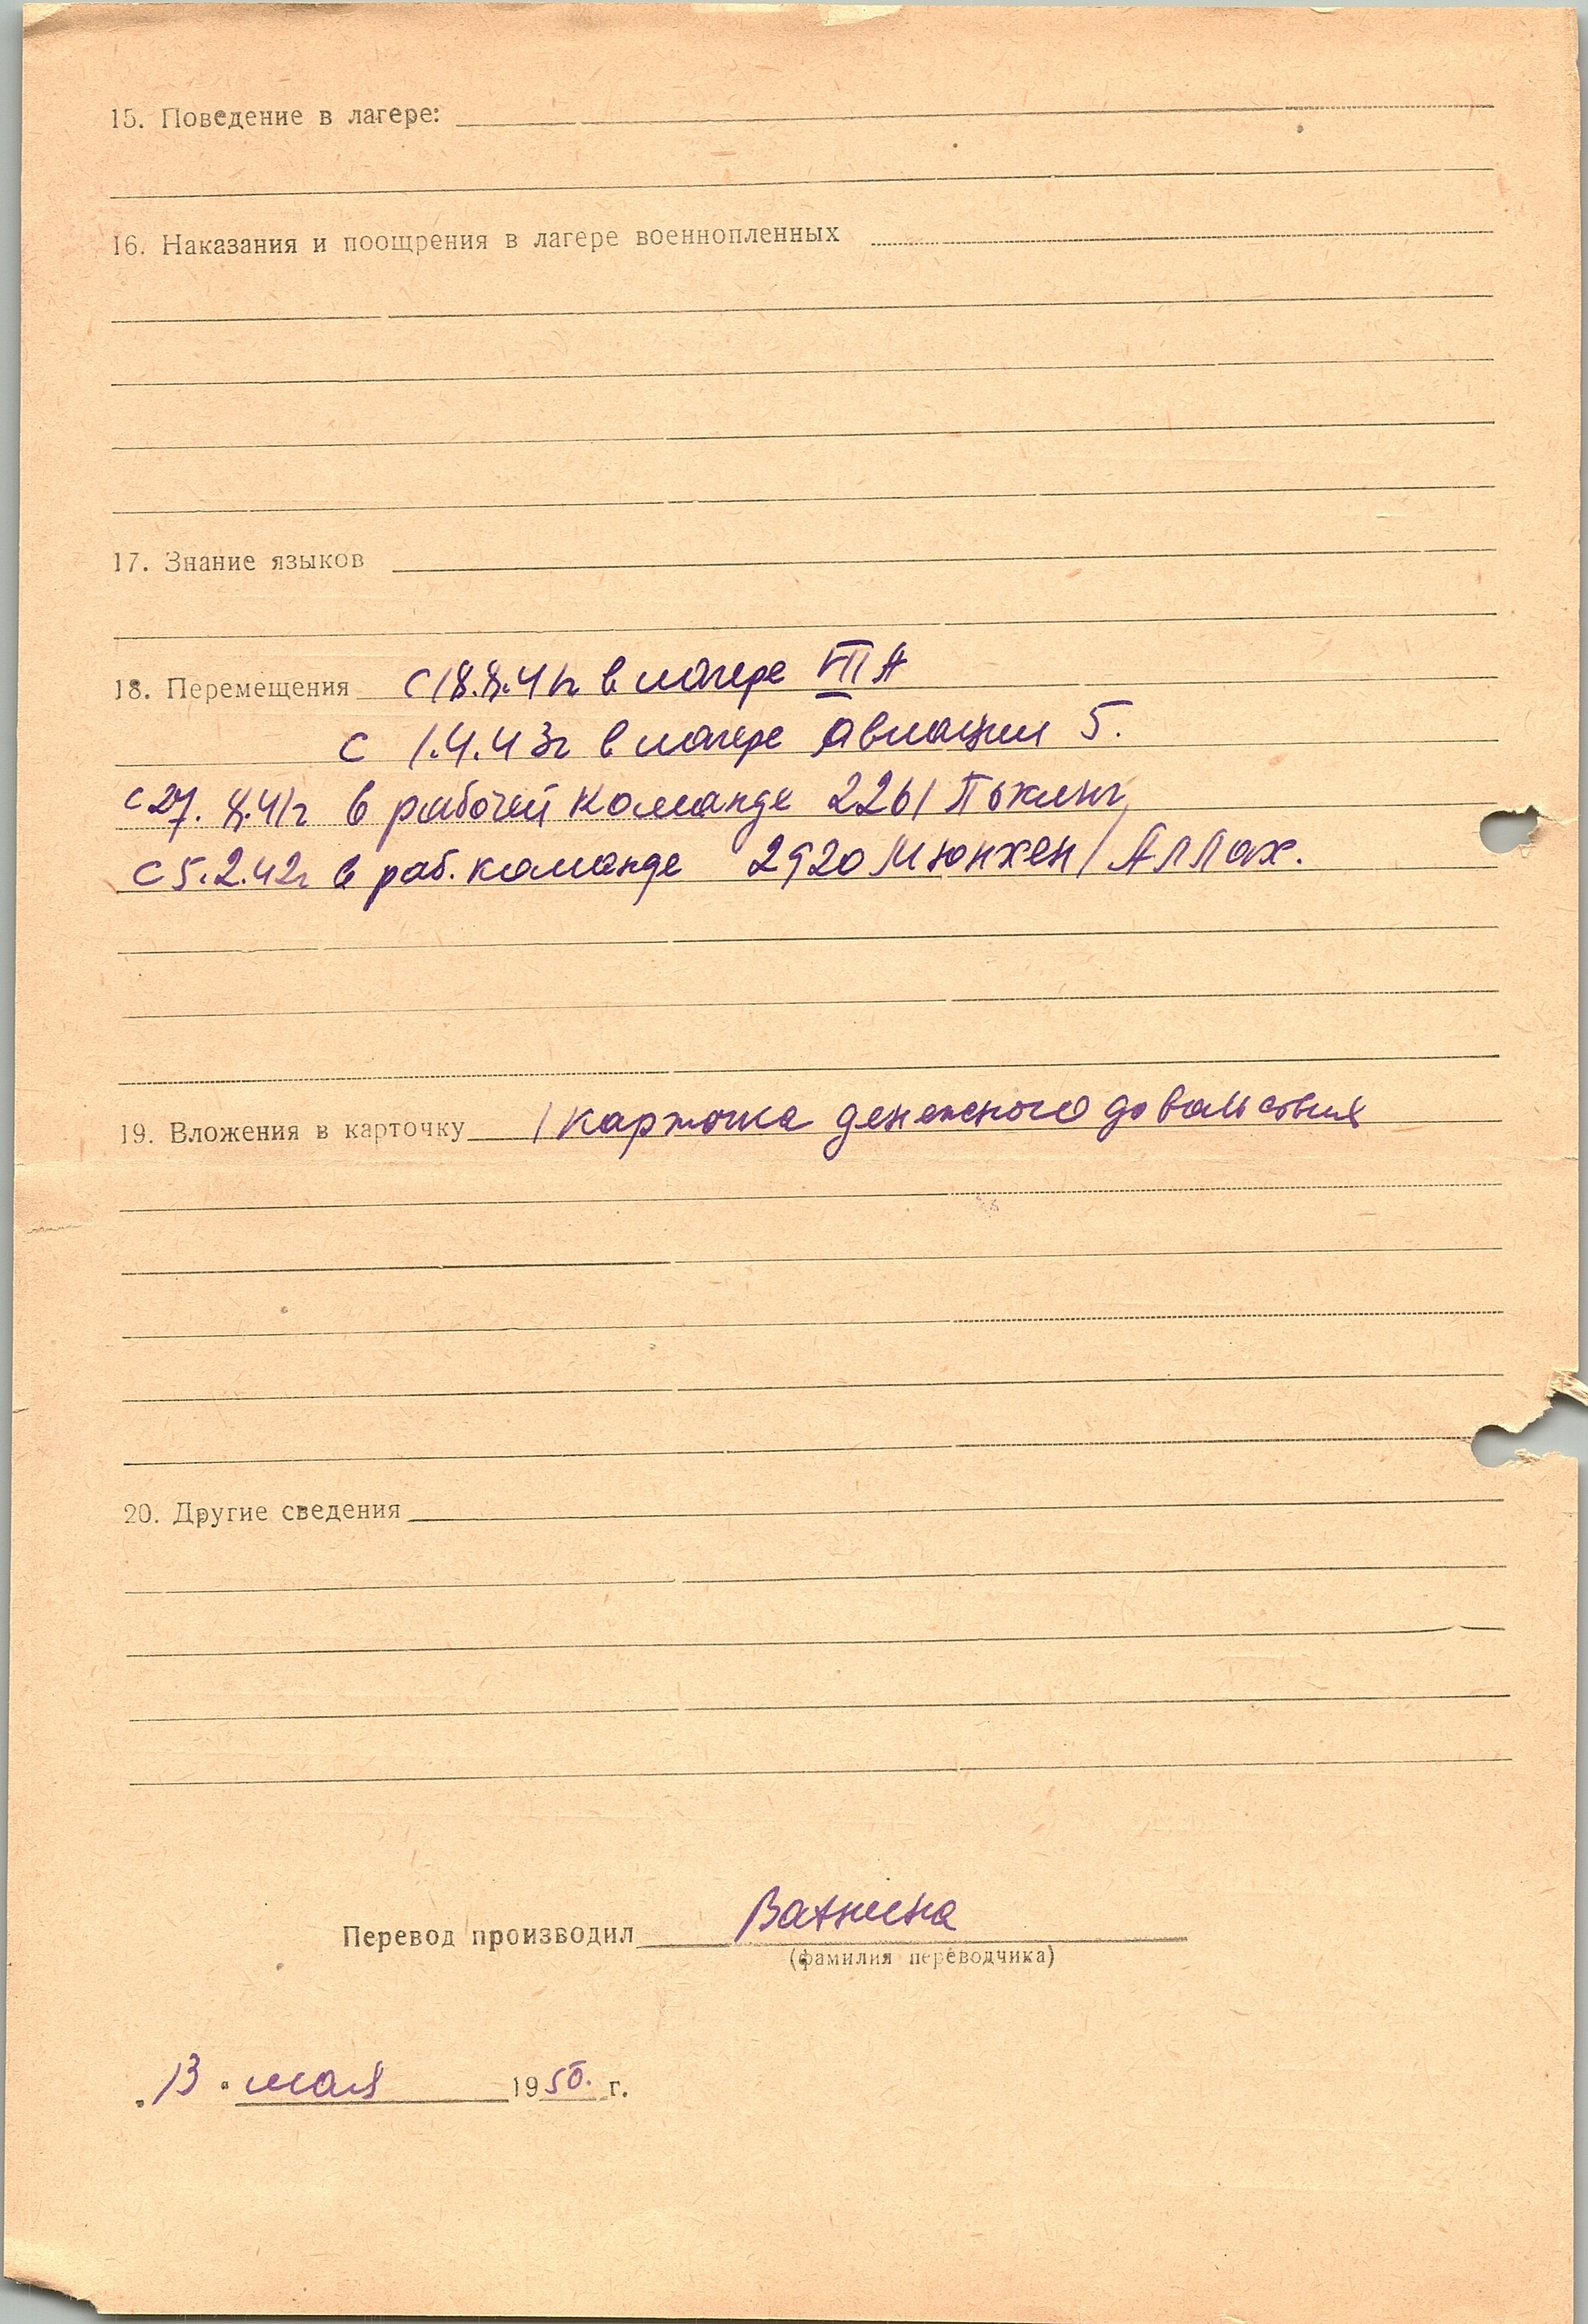 15. Поведение в лагере:
16. Наказания и поощрения в лагере военнопленных
17. Знание языков
18. Перемещения с 18.8.41г в лагере VII А
с 1.4.43г в лагере авиации 5.
с 27. 8.41г в рабочей команде 2261 Пёкинг,
с 5.2.42г в раб. команде 2920 Мюнхен / Аллах.
19. Вложения в карточку 1 карточка денежного довольствия
20. Другие сведения
Перевод производил
(фамилия переводчика)
„13" мая 1950. г.